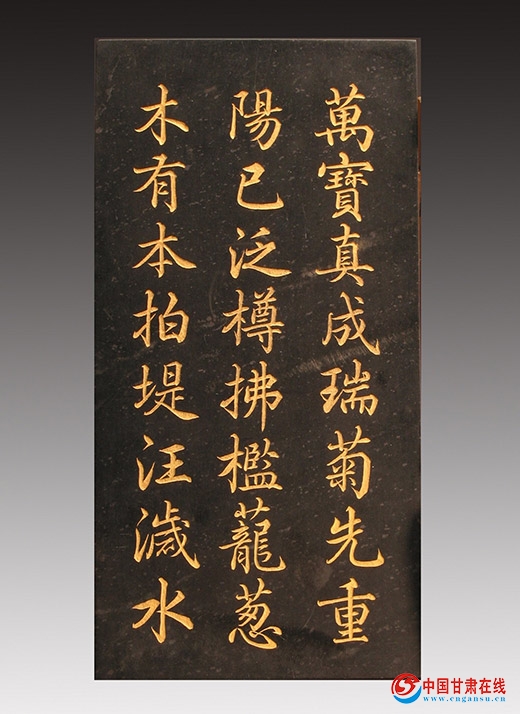 萬寶真成瑞菊先重
陽已泛樽拂檻蘢葱
木有本拍堤汪濊水
中国甘肃在线
www.cngansu.cn